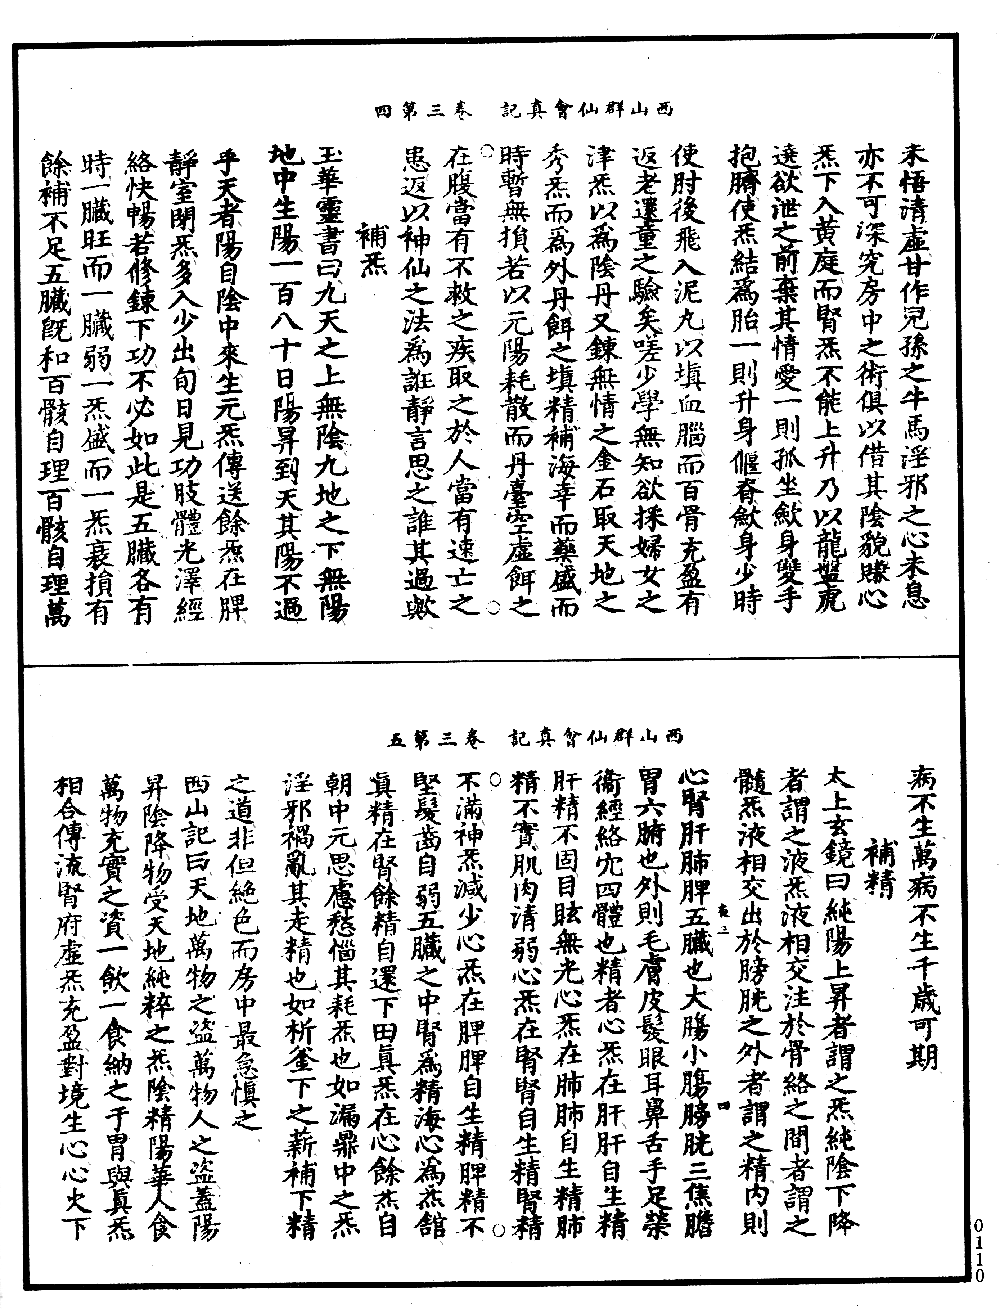 西山群仙會真記　卷三第四
未悟清虛甘作兒孫之牛馬淫邪之心未息
亦不可深究房中之術俱以借其陰貌賺心
炁下入黄庭而腎炁不能上升乃以龍盤虎
遶欲泄之前棄其情愛一則孤坐歛身雙手
抱臍使炁結爲胎一則升身偃脊歛身少時
使肘後飛入泥丸以塡血腦而百骨充盈有
返老還童之驗矣嗟少學無知欲採婦女之
津炁以爲陰丹又鍊無情之金石取天地之
秀炁而爲外丹餌之塡精補海幸而藥盛而
時暫無損若以元陽耗散而丹臺空虛餌之
在腹當有不救之疾取之於人當有速亡之
患返以神仙之法爲誑靜言思之誰其過歟
補炁
玉華靈書曰九天之上無陰九地之下無陽
地中生陽一百八十日陽昇到天其陽不過
乎天者陽自陰中來生元炁傳送餘炁在脾
靜室閉炁多入少出旬日見功肢體光澤經
絡快暢若修鍊下功不必如此是五臟各有
時一臟旺而一臟弱一炁盛而一炁衰損有
餘補不足五臟旣和百骸自理百骸自理萬
西山群仙會真記　卷三第五
病不生萬病不生千歲可期
補精
太上玄鏡曰純陽上昇者謂之炁純陰下降
者謂之液炁液相交注於骨絡之間者謂之
髓炁液相交出於膀胱之外者謂之精内則
心腎肝肺脾五臟也大腸小腸膀胱三焦膽
胃六腑也外則毛膚皮髮眼耳鼻舌手足榮
衞經絡宂四體也精者心炁在肝肝自生精
肝精不固目眩無光心炁在肺肺自生精肺
精不實肌肉清弱心炁在腎腎自生精腎精
不滿神炁減少心炁在脾脾自生精脾精不
堅髮齒自弱五臟之中腎爲精海心爲炁舘
真精在腎餘精自還下田真炁在心餘炁自
朝中元思慮愁惱其耗炁也如漏鼎中之炁
淫邪禍亂其走精也如析釜下之薪補下精
之道非但絶色而房中最急慎之
西山記曰天地萬物之盜萬物人之盜蓋陽
昇陰降物受天地純粹之炁陰精陽華人食
萬物充實之資一飲一食納之于胃與真炁
相合傳流腎府虛炁充盈對境生心心火下
四
0110